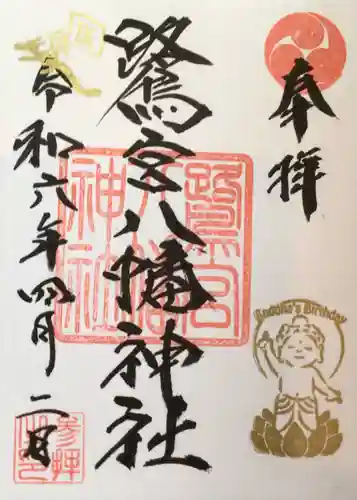 奉拝
鷺宮八幡神社
令和六年四月二日
Buddha's Birthday
鷺宮八幡神社